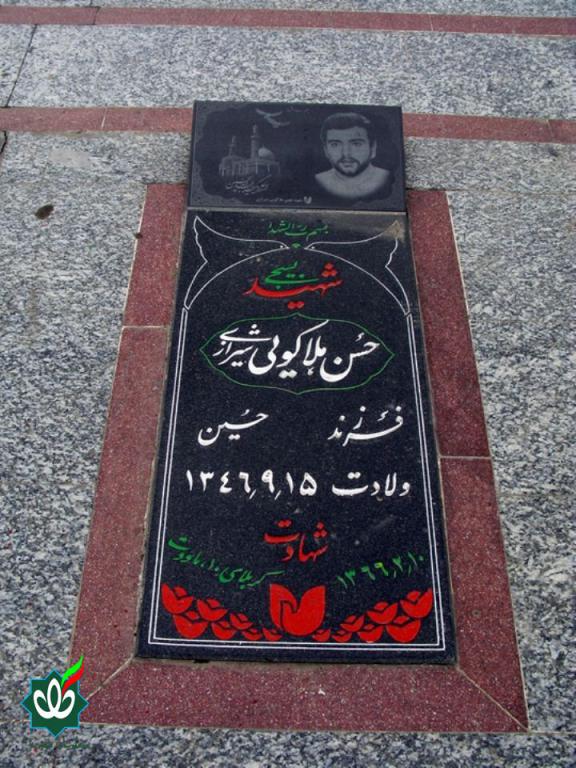 بسم رب الشهدا
شهید بسیجی
حسن ملاکوئی شیرازی
فرزند حسین
ولادت ۱۳۴۶٫۹٫۱۵
شهادت
۱۳۶۶٫۲٫۱۰ کربلای ۱۰، ماووت